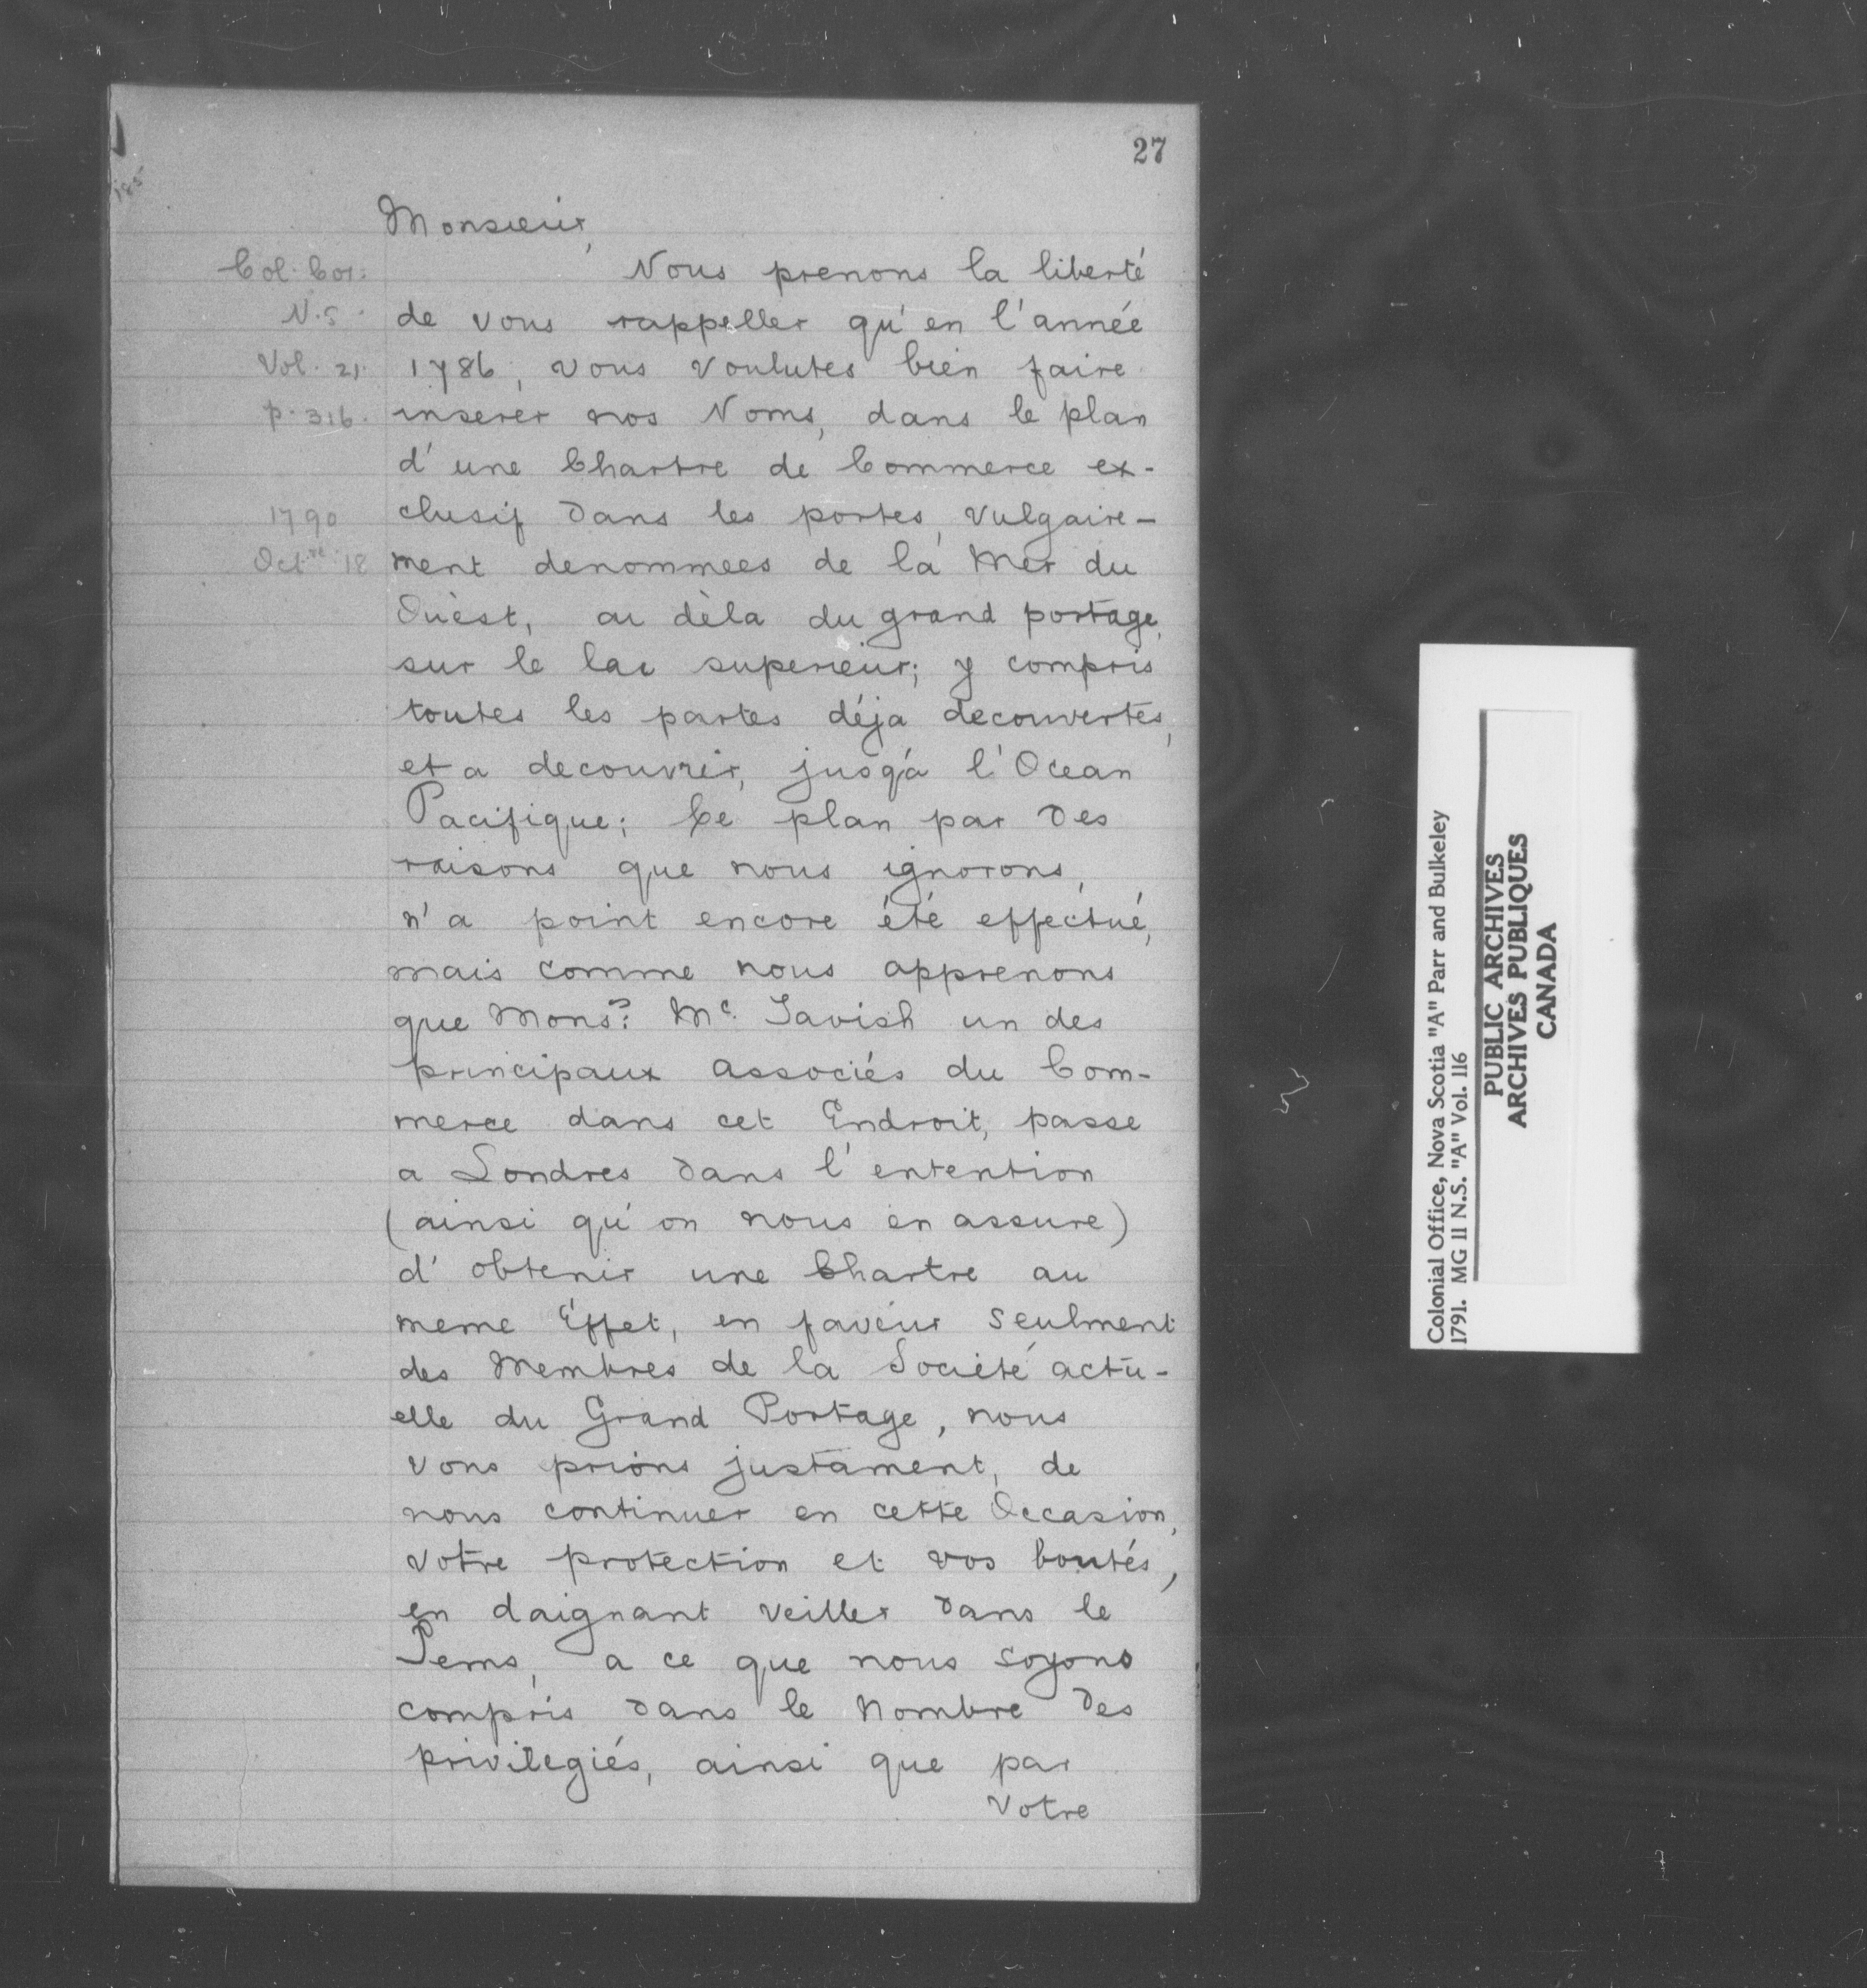 27
Monsieur,
Col. Cor.
N.S.
Vol. 21.
p. 316.
1790
Oct.re 18
Nous prenons la liberté
de vous rappeller qu'en l'année
1786, vous voulutes bien faire
inserer nos Noms, dans le plan
d'une Chartre de Commerce ex-
clusif dans les postes, vulgaire-
ment denommees de la Mer du
Ouèst, au dèla du grand portage,
sur le lac superieur; y compris
toutes les partes déja decouvertes,
et a decouvrir, jusq'à l'Ocean
Pacifique; Ce plan par des
raisons que nous ignorons,
n'a point encore été effectué,
mais comme nous apprenons
que Monsr. Mc. Tavish un des
principaux associés du Com-
merce dans cet Endroit, passe
a Londres dans l'entention
(ainsi qu'on nous en assure)
d'obtenir une Chartre au
meme Éffet, en faveur seulment
des Membres de la Societé actu-
elle du Grand Portage, nous
vous prions justament, de
nous continuer en cette Occasion,
votre protection et vos bontés,
en daignant veiller dans le
Tems, a ce que nous soyons
compris dans le Nombre des
privilegiés, ainsi que par
Votre
Colonial Office, Nova Scotia "A" Parr and Bulkeley
1791. MG 11 N.S. "A" Vol. 116
PUBLIC ARCHIVES
ARCHIVES PUBLIQUES
CANADA